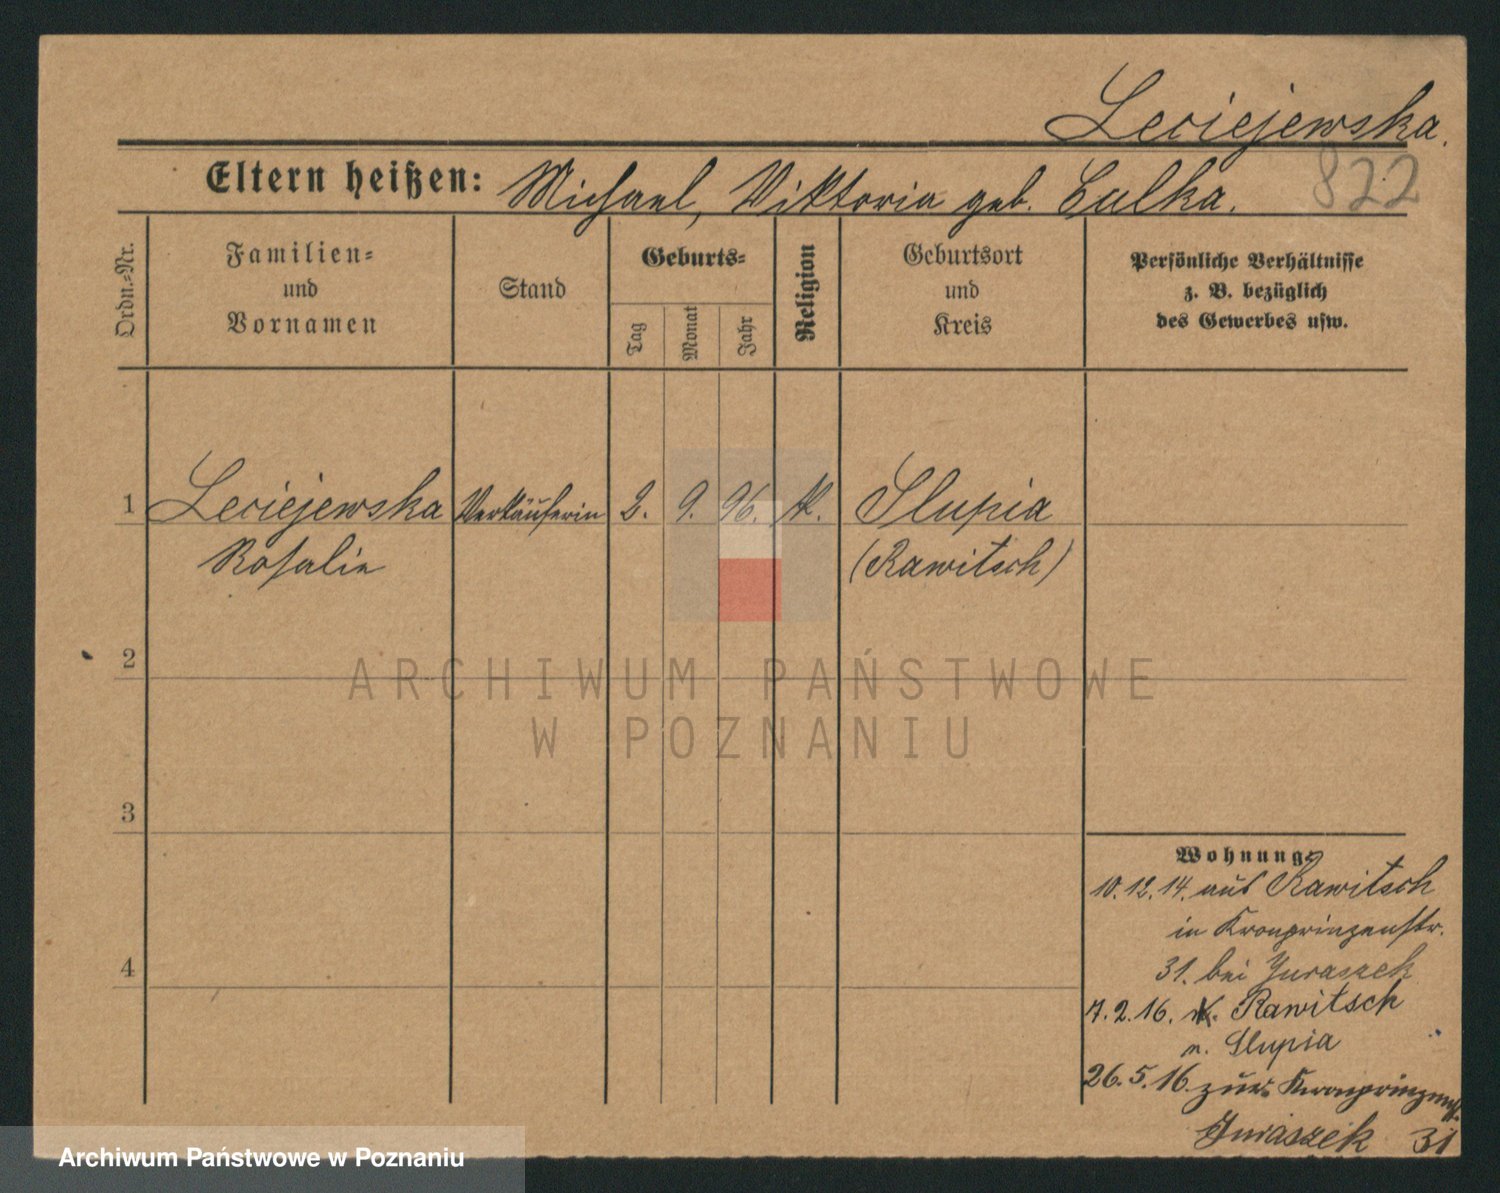 Leciejewska.
822
Eltern heißen: Michael, Viktoria geb. Culka.
Ordn.-Nr.
Familien-
und
Vornamen
Stand
Geburts-
Tag
Monat
Jahr
Religion
Geburtsort
und
Kreis
Persönliche Verhältnisse
z. B. bezüglich
des Gewerbes usw.
1 Leciejewska Verkäuferin 2. 9. 96. k. Slupia
Rosalie (Rawitsch)
2
3
4
ARCHIWUM PAŃSTWOWE
W POZNANIU
Wohnung:
10.12.14. aus Rawitsch
in Kronprinzenstr.
31. bei Juraszek
7.2.16. n. Rawitsch
n. Slupia
26.5.16. zur. Kronprinzenstr.
Juraszek 31
Archiwum Państwowe w Poznaniu